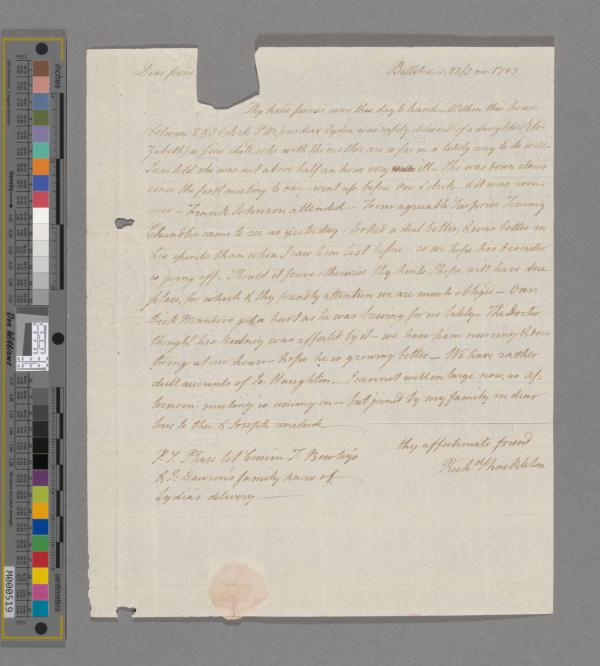 Dear friend
Ballitore, 23/3 mo. 1783
Thy kind favour came this day to hand - Within this hour
between 2 & 3 o'clock P.M. our dear Lydia was safely delivered of a daughter (Eli-
zabeth) a fine child, who with the mother are so far in a likely way to do well.
I am told she was not above half an hour very ill. She was down stairs
since the first meeting to day - went up before one o'clock & it was soon
over - Frank Johnson attended - To our agreeable surprize Tommy
Chandlee came to see us yesterday - looked a deal better, & was better in
his spirits than when I saw him last before - so we hope his disorder
is going off. Should it prove otherwise thy hints I hope will have due
place, for which & thy friendly attention we are much obliged - Our
Dick Manders got a hurt as he was brewing for us lately - The Doctor
thought his kidney was affected by it - we have him nursing & doc-
toring at our house - & hope he is growing better - We have rather
dull accounts of Jo: Haughton - I cannot well enlarge now, as af-
ternoon meeting is coming on - but joined by my family in dear
love to thee & Joseph conclude
thy affectionate friend
Rich'd Shackleton
P.S. Please let Cousin T. Bewley's
& J. Dawson's family know of
Lydia's delivery
inches
centimetres
Density
Don Williams
M000519